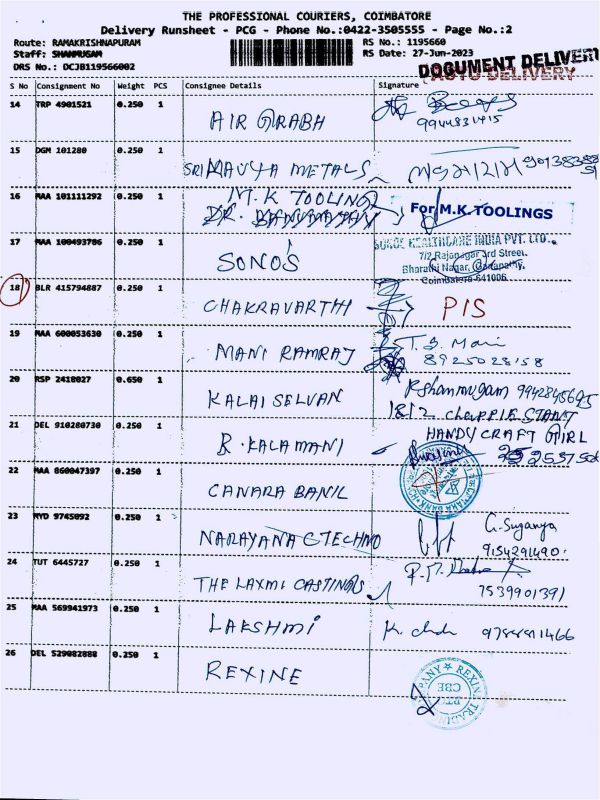 THE PROFESSIONAL COURIERS, COIMBATORE
Delivery Runsheet - PCG - Phone No.:0422-3505555 - Page No.:2
Route: RAMAKRISHNAPURAM
Staff: SHANMUGAM
DRS No.: DCJB119566002
RS No.: 1195660
RS Date: 27-Jun-2023
DOCUMENT DELIVERY
AUTO DELIVERY
S No Consignment No Weight PCS Consignee Details Signature
14 TRP 4901521 0.250 1 AIR PRABH
9944831415
15 DGM 101280 0.250 1 SRI MAVYA METALS
16 MAA 101111292 0.250 1 M.K TOOLING
For M.K.TOOLINGS
17 MAA 100493786 0.250 1 SONO'S
HEALTHCARE INDIA PVT. LTD.
7/2 Rajanagar 3rd Street,
Bharathi Nagar, Ganapathy,
Coimbatore-641006.
18 BLR 415794887 0.250 1 CHAKRAVARTHI PIS
19 MAA 600053630 0.250 1 MANI RAMRAJ T. S. Mani
8925028158
20 RSP 2418027 0.650 1 KALAI SELVAN Rshanmugam 9942845695
21 DEL 910280730 0.250 1 R. KALAMANI HANDY CRAFT GIRL
22 MAA 860047397 0.250 1 CANARA BANK
23 MYD 9745092 0.250 1 NARAYANA E TECHNO G. Suganya
9154291490.
24 TUT 6445727 0.250 1 THE LAXMI CASTINGS
7539901391
25 MAA 569941973 0.250 1 LAKSHMI
26 DEL 529082888 0.250 1 REXINE
REXINE TRADING COMPANY
CBE